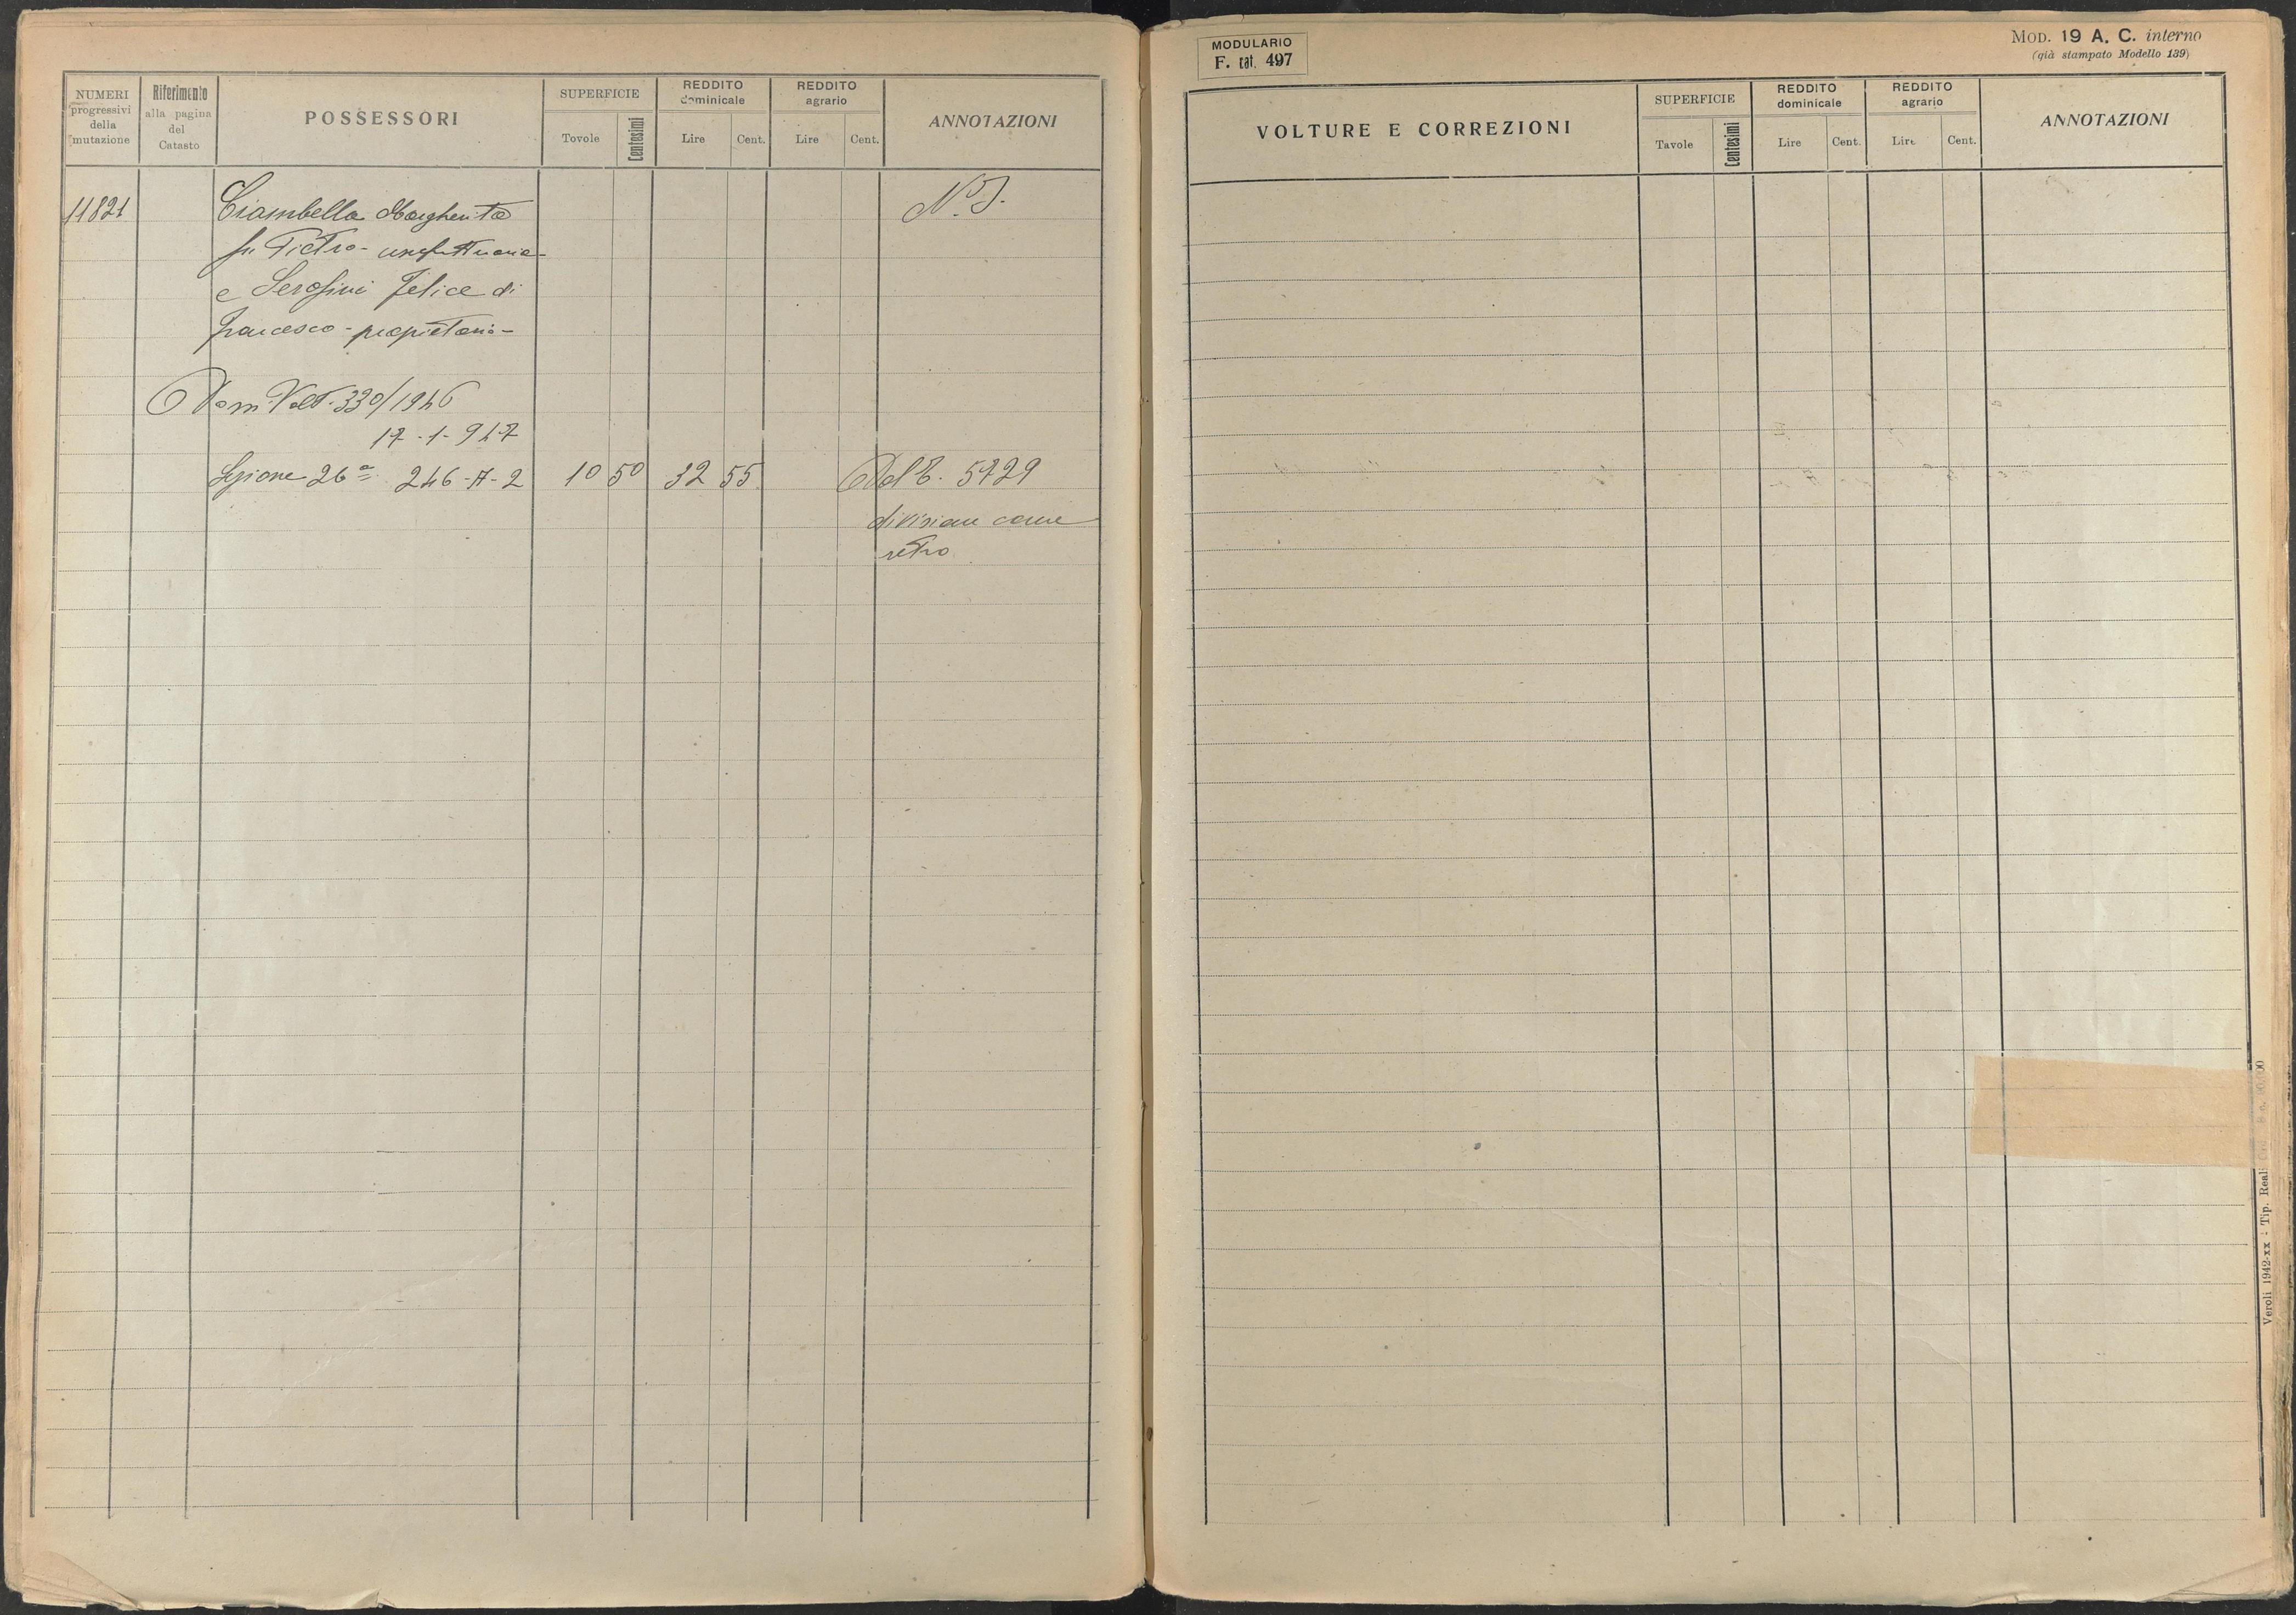 NUMERI
progressivi
della
mutazione
Riferimento
alla pagina
del
Catasto
POSSESSORI
SUPERFICIE
Tavole
Centesimi
REDDITO
dominicale
Lire
Cent.
REDDITO
agrario
Lire
Cent.
ANNOTAZIONI
11821
Ciambella Margherita
fu Pietro - usufruttuaria -
e Serafini Felice di
Francesco - proprietario -
Dom. Volt. 330/1946
17-1-947
Sezione 26ª 246-A-2
10 50
32 55
Dal C. 5729
division come
retro
MODULARIO
F. cat. 497
MOD. 19 A. C. interno
(già stampato Modello 139)
VOLTURE E CORREZIONI
SUPERFICIE
Tavole
Centesimi
REDDITO
dominicale
Lire
Cent.
REDDITO
agrario
Lire
Cent.
ANNOTAZIONI
Veroli 1942-XX - Tip. Reali